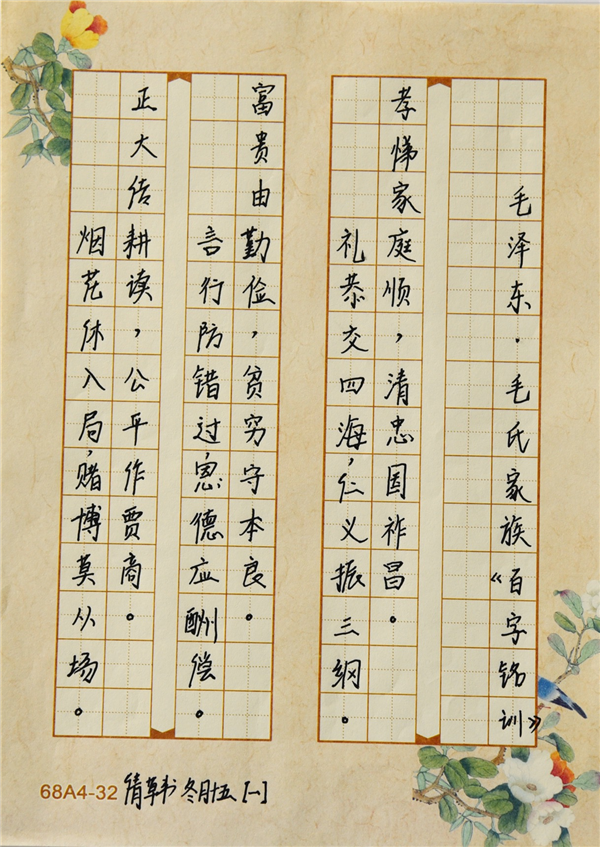 毛泽东·毛氏家族《百字铭训》
孝悌家庭顺，清忠国祚昌。
礼恭交四海，仁义振三纲。
富贵由勤俭，贫穷守本良。
言行防错过，恩德应酬偿。
正大佶耕读，公平作贾商。
烟花休入局，赌博莫从场。
68A4-32 草书 冬月十五 [一]